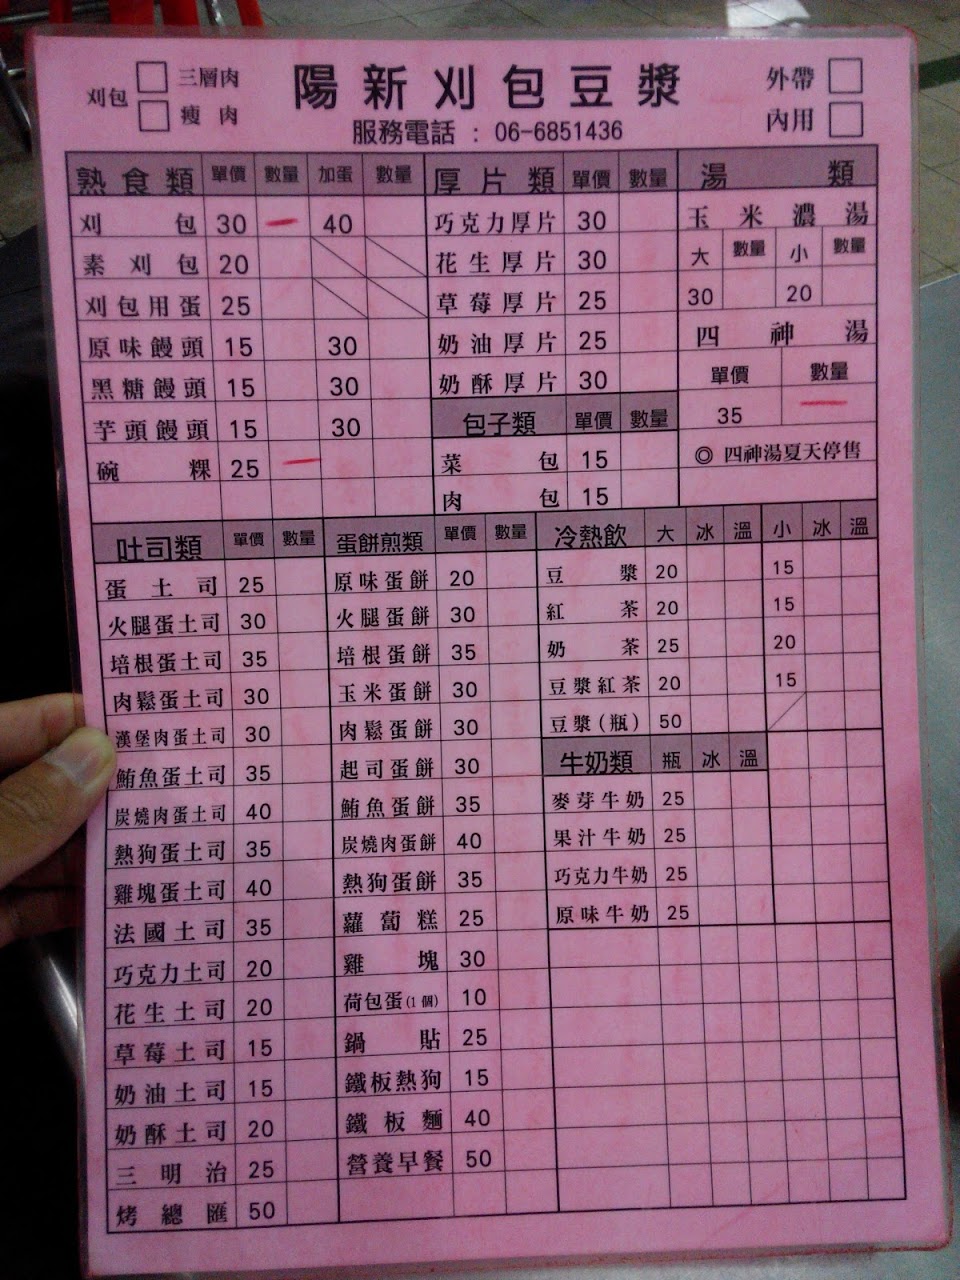 陽新刈包豆漿
刈包 □ 三層肉 □ 瘦肉
外帶 □
內用 □
服務電話：06-6851436
熟食類 單價 數量 加蛋 數量
刈包 30 一 40
素刈包 20
刈包用蛋 25
原味饅頭 15 30
黑糖饅頭 15 30
芋頭饅頭 15 30
碗粿 25 一
厚片類 單價 數量
巧克力厚片 30
花生厚片 30
草莓厚片 25
奶油厚片 25
奶酥厚片 30
包子類 單價 數量
菜包 15
肉包 15
湯類
玉米濃湯
大 數量 小 數量
30 20
四神湯
單價 數量
35 一
◎ 四神湯夏天停售
吐司類 單價 數量
蛋土司 25
火腿蛋土司 30
培根蛋土司 35
肉鬆蛋土司 30
漢堡肉蛋土司 30
鮪魚蛋土司 35
炭燒肉蛋土司 40
熱狗蛋土司 35
雞塊蛋土司 40
法國土司 35
巧克力土司 20
花生土司 20
草莓土司 15
奶油土司 15
奶酥土司 20
三明治 25
烤總匯 50
蛋餅煎類 單價 數量
原味蛋餅 20
火腿蛋餅 30
培根蛋餅 35
玉米蛋餅 30
肉鬆蛋餅 30
起司蛋餅 30
鮪魚蛋餅 35
炭燒肉蛋餅 40
熱狗蛋餅 35
蘿蔔糕 25
雞塊 30
荷包蛋(1個) 10
鍋貼 25
鐵板熱狗 15
鐵板麵 40
營養早餐 50
冷熱飲 大 冰 溫 小 冰 溫
豆漿 20 15
紅茶 20 15
奶茶 25 20
豆漿紅茶 20 15
豆漿(瓶) 50
牛奶類 瓶 冰 溫
麥芽牛奶 25
果汁牛奶 25
巧克力牛奶 25
原味牛奶 25